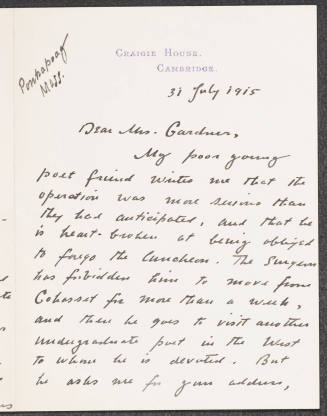 Ponkapoag
Mass.
CRAIGIE HOUSE.
CAMBRIDGE.
31 July 1915
Dear Mrs. Gardner,
My poor young
poet friend writes me that the
operation was more serious than
they had anticipated, and that he
is heart-broken at being obliged
to forego the luncheon. The surgeon
has forbidden him to move from
Cohasset for more than a week,
and then he goes to visit another
undergraduate poet in the West
to whom he is devoted. But
he asks me for your address,